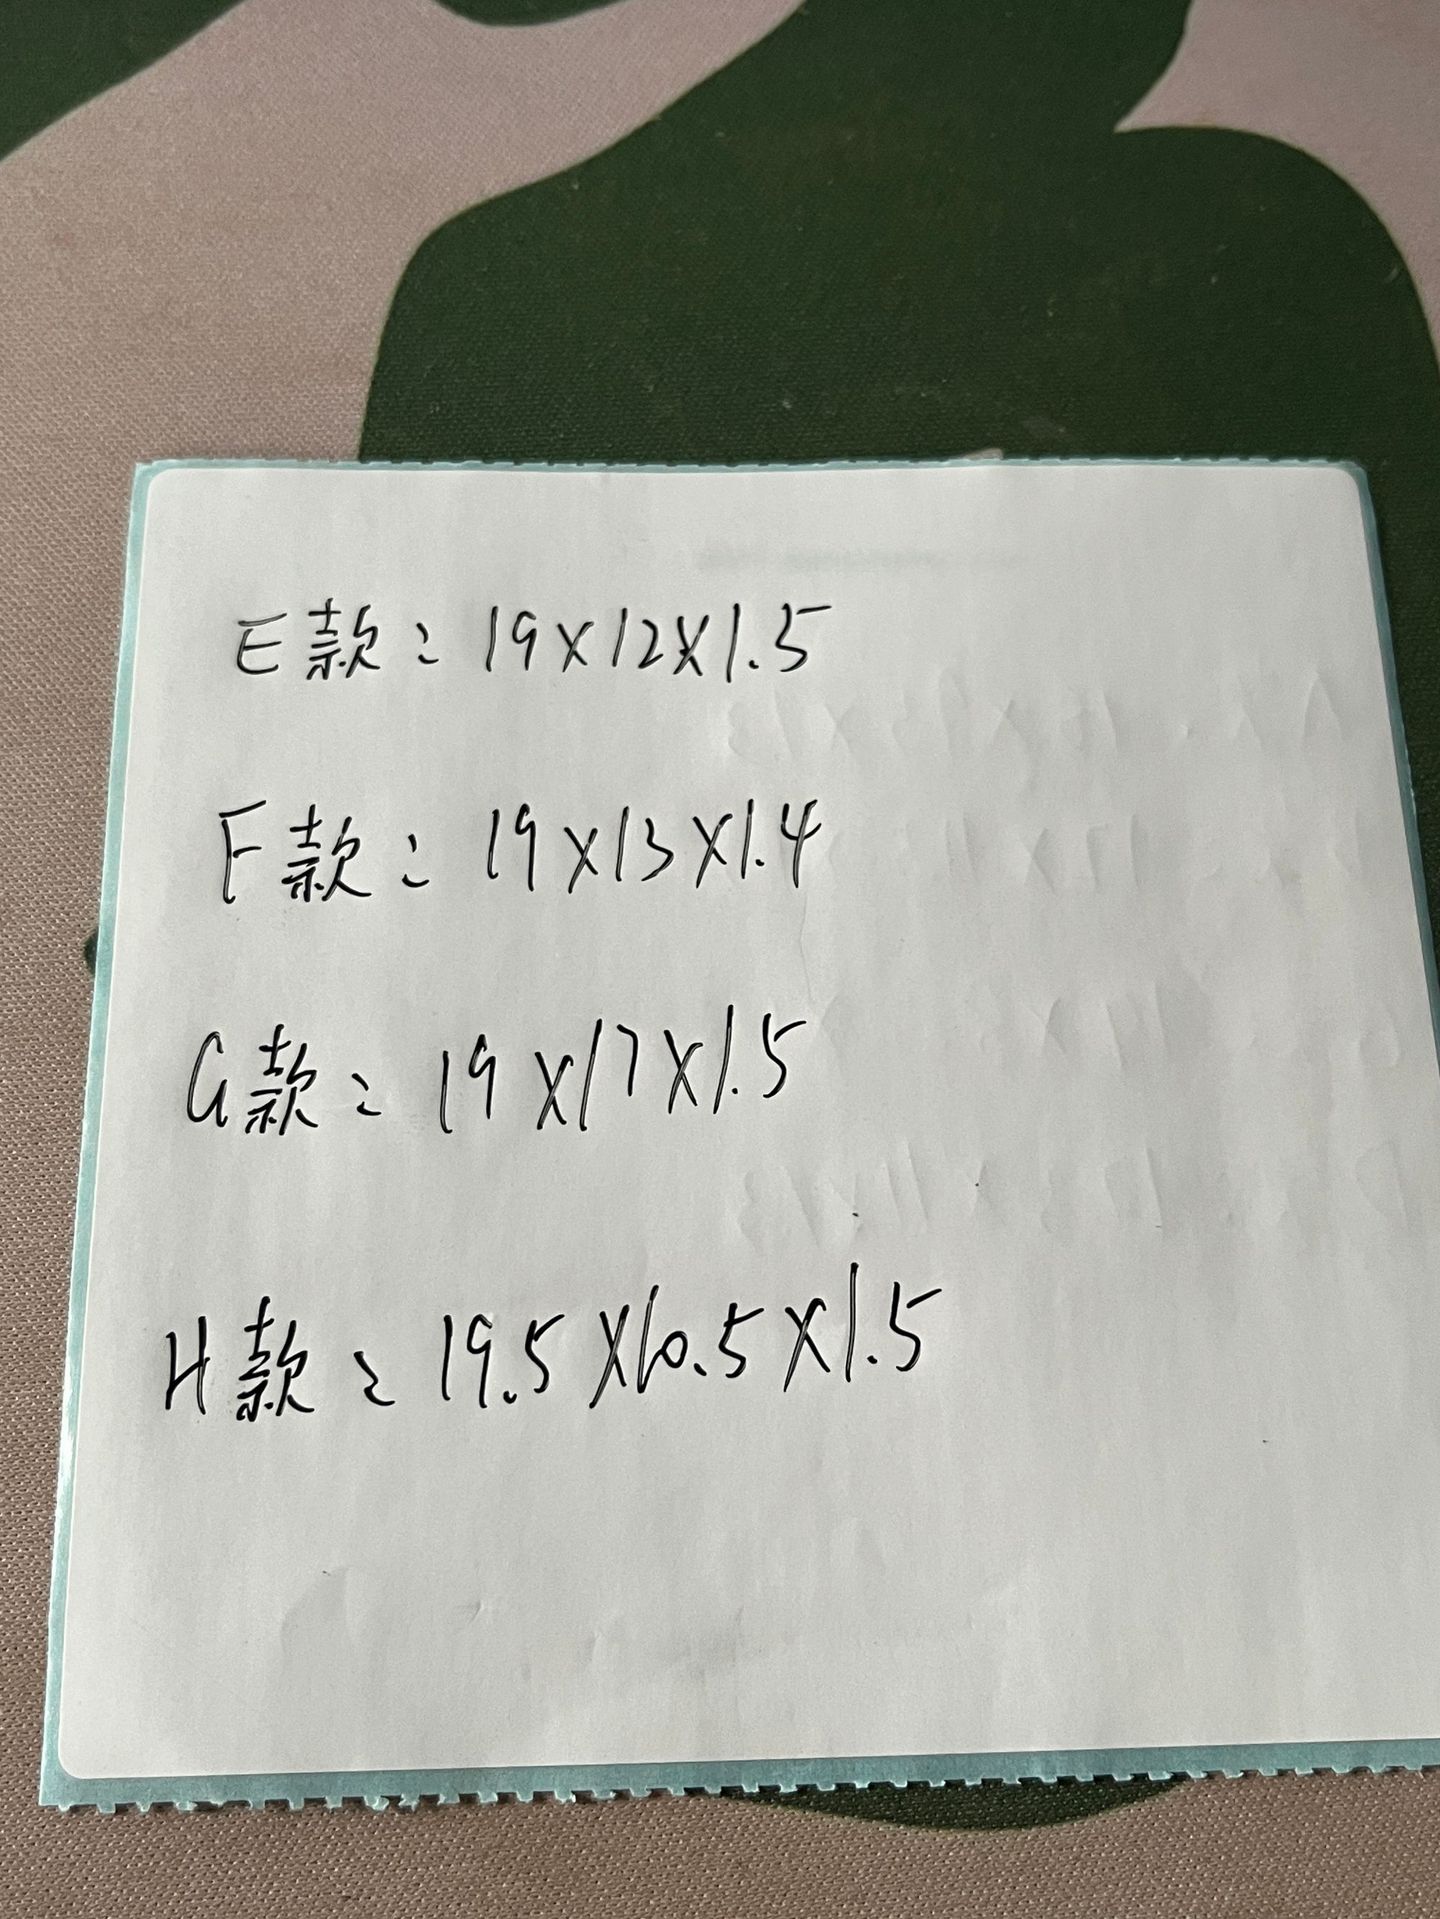 E款：19X12X1.5
F款：19X13X1.4
G款：19X17X1.5
H款：19.5X10.5X1.5